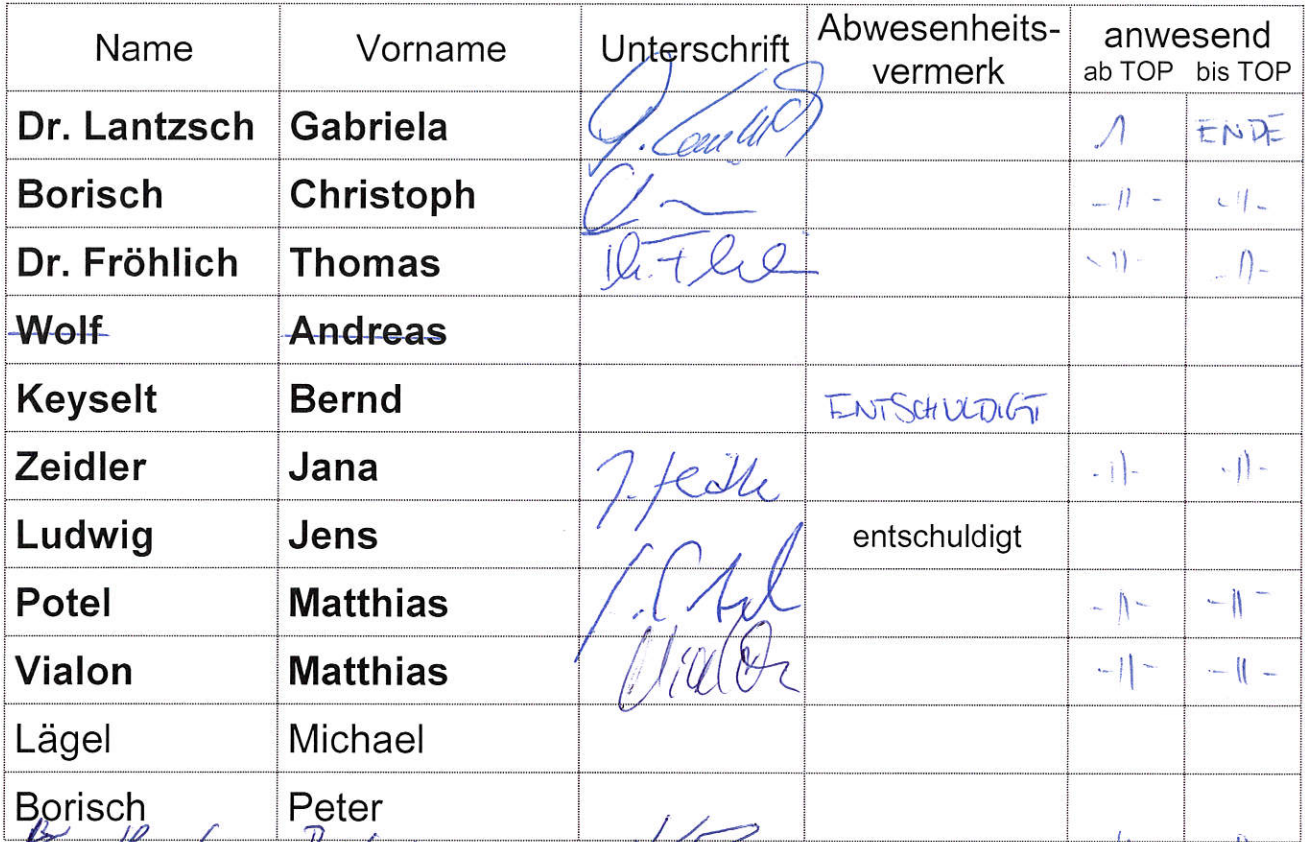 Name Vorname Unterschrift Abwesenheits- anwesend
vermerk ab TOP bis TOP
Dr. Lantzsch Gabriela 1 ENDE
Borisch Christoph -11- -11-
Dr. Fröhlich Thomas -11- -11-
Wolf Andreas
Keyselt Bernd ENTSCHULDIGT
Zeidler Jana J. Zeidle -11- -11-
Ludwig Jens entschuldigt
Potel Matthias -11- -11-
Vialon Matthias Vialon -11- -11-
Lägel Michael
Borisch Peter